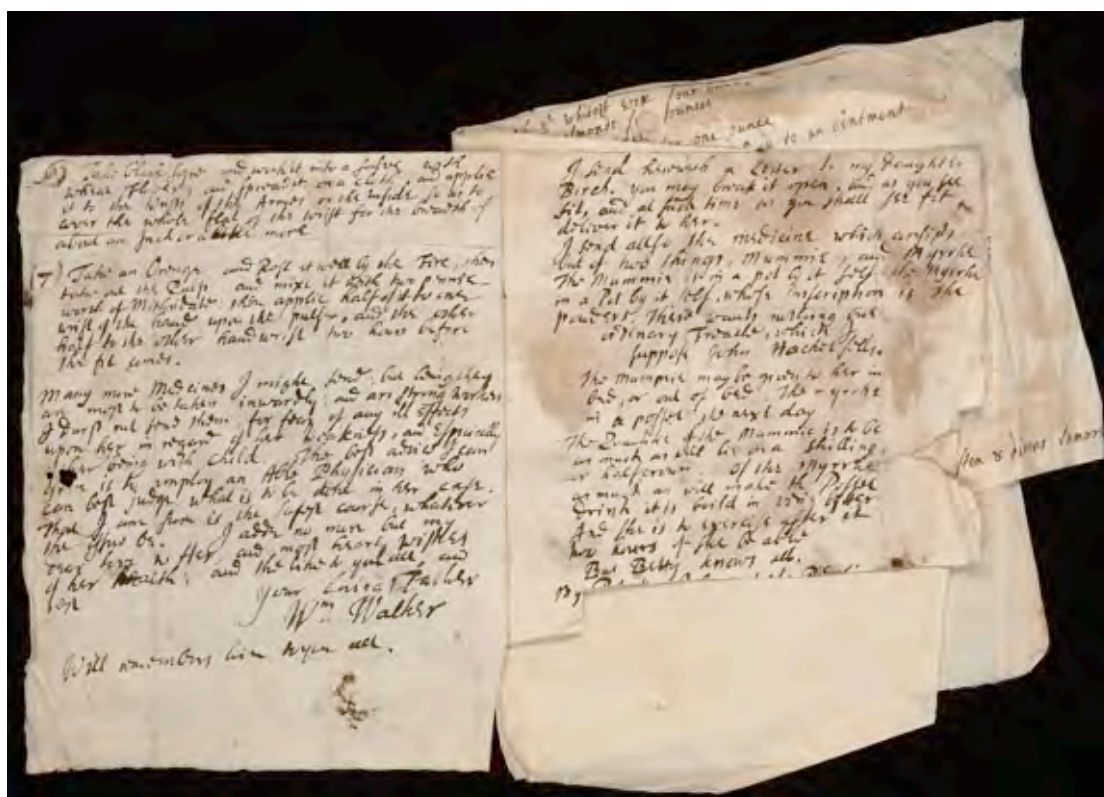 and work it into a salve with
wheat flower, and spread it on a cloth, and applie
it to the wrists of the Armes on the inside so as to
cover the whole flat of the wrist for the breadth of
about an Inch or a little more
7) Take an Orenge and Rost it well by the Fire, then
take out the Pulp and mixe it with two pennie-
worth of Mithridate, then applie half of it to one
wrist of the hand upon the pulse, and the other
half to the other handwrist two hours before
the fit comes.
Many more Medicines I might send, but being they
are most to be taken inwardly, and are strong workers
I durst not send them for fear of any ill effects
upon her in regard of her weakness, and Especially
her being with child. The best advice I can
give is to employ an Able Physician who
can best judge what is to be done in her case.
That I am sure is the safest course, whatever
the issue be. I adde no more but my
love to Her and most hearty wishes
of her health: and the like to you all, and
rest
Your Loving Father
Wm Walker
Will remembers him to you all.
four ounces
almonds ounces
one ounce
to an ointment
I send herewith a Letter to my Daughter
Birch. you may break it open, as you see
fit, and at such time as you shall see fit
deliver it to her.
I send allso the medicine which consists
but of two things, Mummie, and Myrrhe
The Mummie is in a pot by it self the Myrrhe
in a Pot by it self, whose Inscription is the
powders. There wants nothing but
ordinary Treacle, which I
suppose John Hachet sells.
The Mummie may be given to her in
bed, or out of bed. The Myrrhe
in a posset the next day
The Quantitie of the Mummie is to be
as much as will lie on a shilling,
or halfcrown. Of the Myrrhe
as much as will make the Posset
Drink it is boild in
And she is to exercise after it
two hours if she be able
But Betty knows all.
My